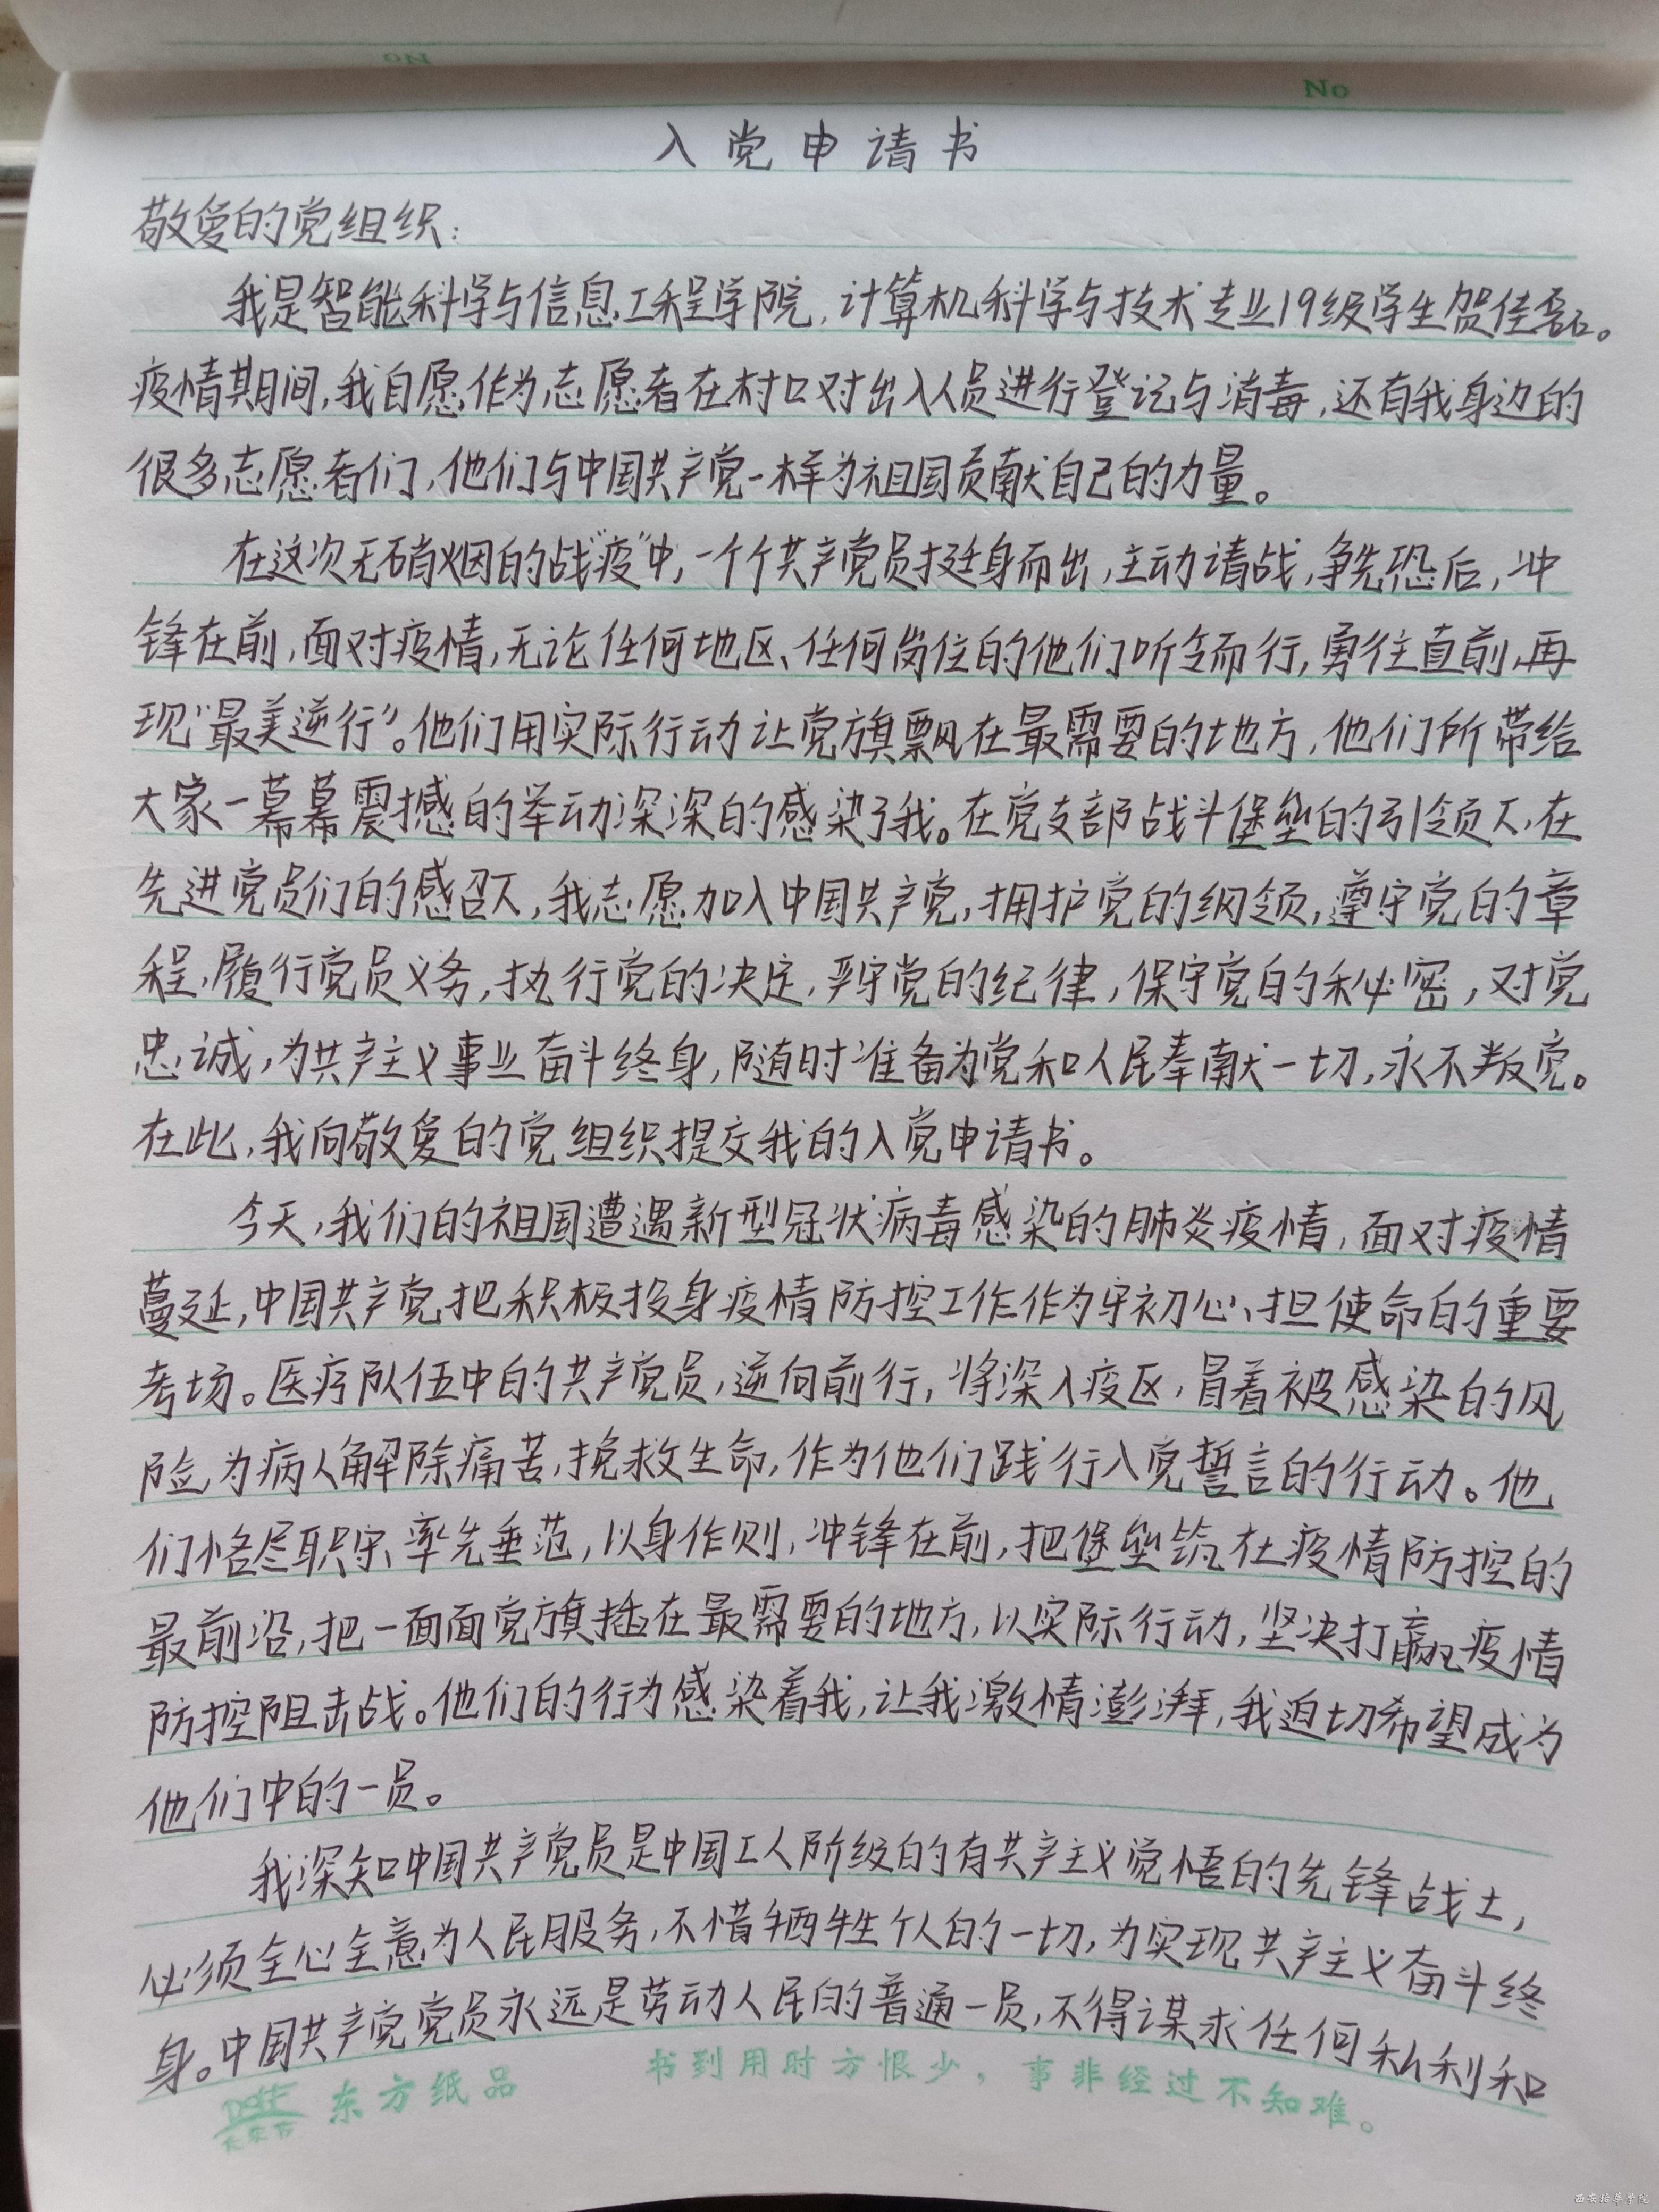 No
No
入党申请书
敬爱的党组织：
我是智能科学与信息工程学院，计算机科学与技术专业19级学生贺佳磊。
疫情期间，我自愿作为志愿者在村口对出入人员进行登记与消毒，还有我身边的
很多志愿者们，他们与中国共产党一样为祖国贡献自己的力量。
在这次无硝烟的战“疫”中，一个个共产党员挺身而出，主动请战，争先恐后，冲
锋在前，面对疫情，无论任何地区、任何岗位的他们听令而行，勇往直前，再
现“最美逆行”。他们用实际行动让党旗飘在最需要的地方，他们所带给
大家一幕幕震撼的举动深深的感染了我。在党支部战斗堡垒的引领下，在
先进党员们的感召下，我志愿加入中国共产党，拥护党的纲领，遵守党的章
程，履行党员义务，执行党的决定，严守党的纪律，保守党的秘密，对党
忠诚，为共产主义事业奋斗终身，随时准备为党和人民奉献一切，永不叛党。
在此，我向敬爱的党组织提交我的入党申请书。
今天，我们的祖国遭遇新型冠状病毒感染的肺炎疫情，面对疫情
蔓延，中国共产党把积极投身疫情防控工作作为守初心、担使命的重要
考场。医疗队伍中的共产党员，逆向前行，将深入疫区，冒着被感染的风
险，为病人解除痛苦，挽救生命，作为他们践行入党誓言的行动。他
们恪尽职守、率先垂范，以身作则，冲锋在前，把堡垒筑在疫情防控的
最前沿，把一面面党旗插在最需要的地方，以实际行动，坚决打赢疫情
防控阻击战。他们的行为感染着我，让我激情澎湃，我迫切希望成为
他们中的一员。
我深知中国共产党员是中国工人阶级的有共产主义觉悟的先锋战士，
必须全心全意为人民服务，不惜牺牲个人的一切，为实现共产主义奋斗终
身。中国共产党党员永远是劳动人民的普通一员，不得谋求任何私利和
东方纸品 书到用时方恨少，事非经过不知难。
西安培华学院